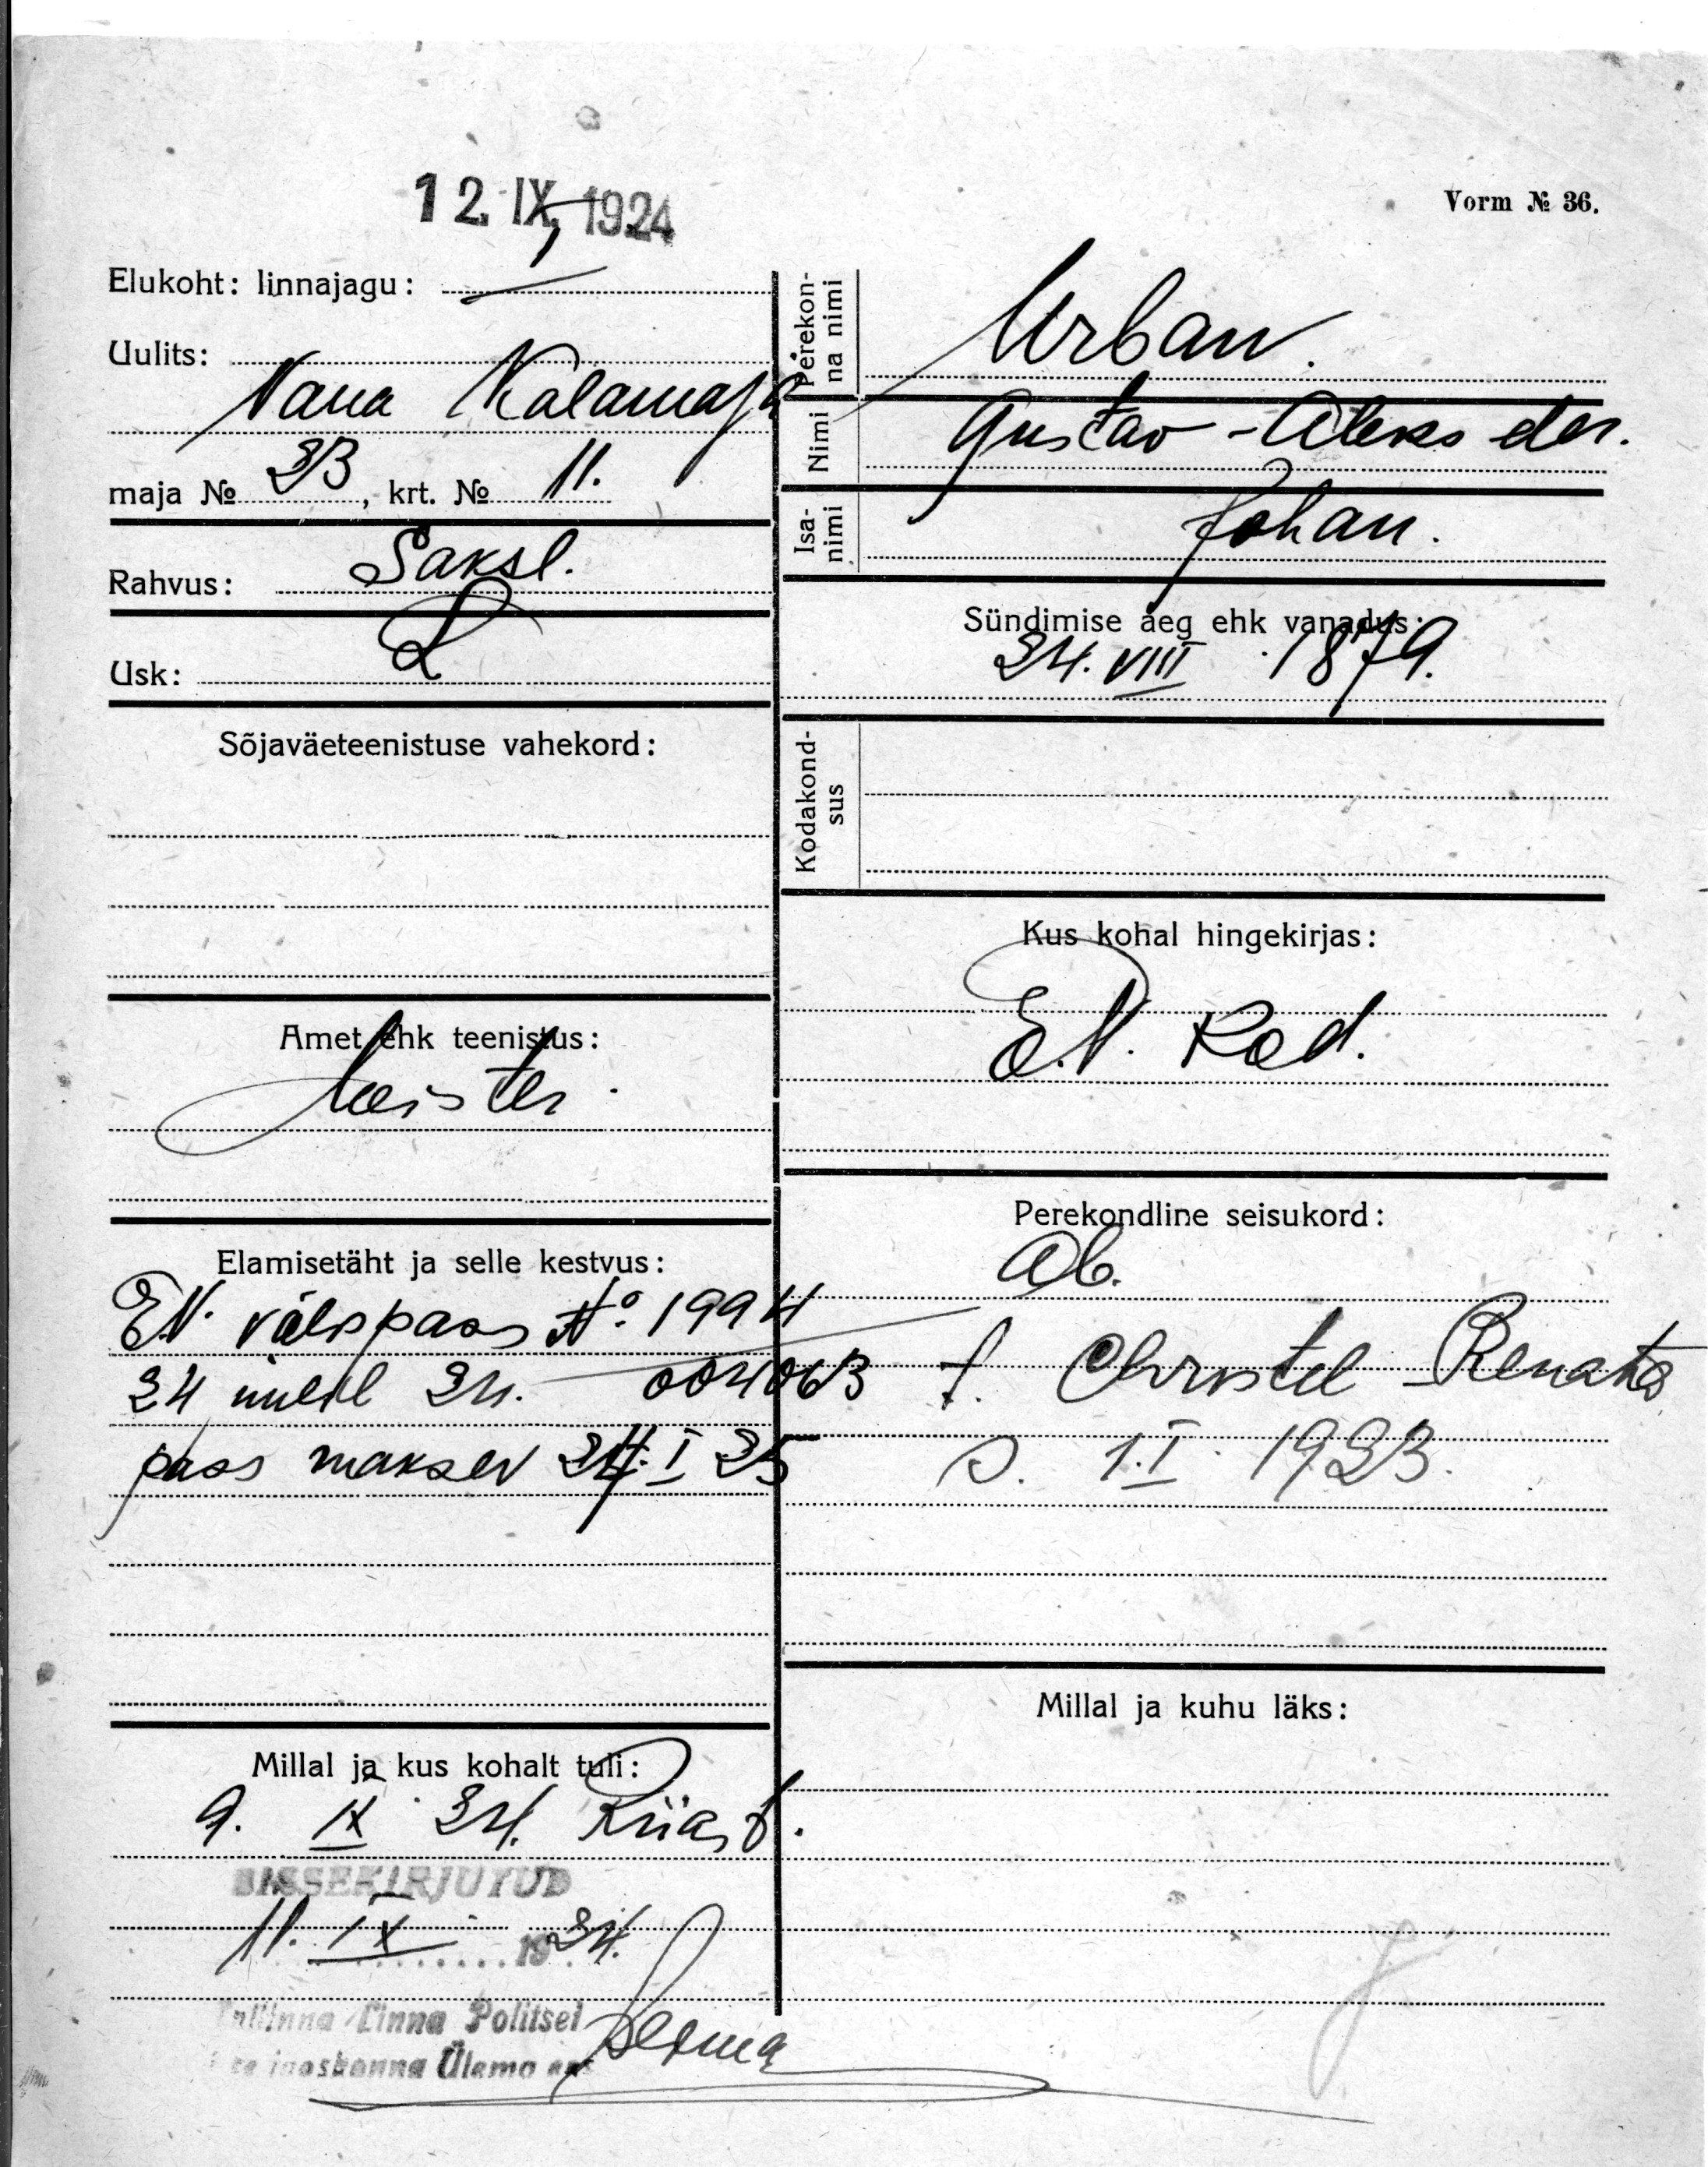 12. IX, 1924
Vorm № 36.
Elukoht: linnajagu:
Uulits:
Vana Kalamaja
maja № 23, krt. № 11.
Rahvus: Saksl.
Usk: L
Sõjaväeteenistuse vahekord:
Amet ehk teenistus:
Meister.
Elamisetäht ja selle kestvus:
E.V. välispass № 1994
24 juulil 24. 004063
pass maksev 24. I 25
Millal ja kus kohalt tuli:
9. IX 24. Riiast.
SISSEKIRJUTUD
11. IX 1924.
Tallinna Linna Politsei
jaoskonna Ülema
Perekonna nimi
Urban.
Nimi
Gustav-Aleksder.
Isanimi
Johan.
Sündimise aeg ehk vanadus:
24. VIII 1879.
Kodakondsus
Kus kohal hingekirjas:
E.V. Kod.
Perekondline seisukord:
Ab.
t. Christel-Renata
s. 1. I. 1923.
Millal ja kuhu läks: